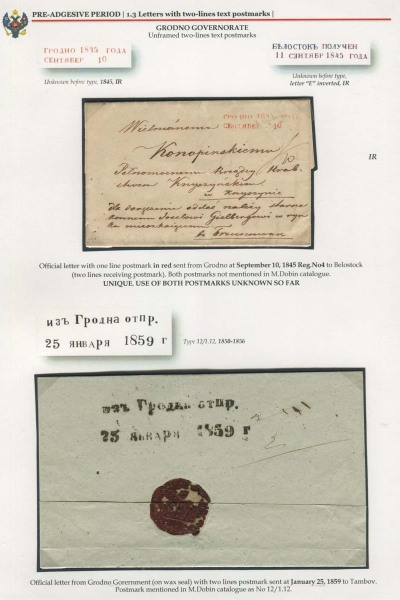 PRE-ADGESIVE PERIOD | 1.3 Letters with two-lines text postmarks |
GRODNO GOVERNORATE
Unframed two-lines text postmarks
ГРОДНО 1845 ГОДА
СЕНТЯБЕР 10
БѢЛОСТОКЪ ПОЛУЧЕН
11 СЕНТЯБР 1845 ГОДА
Unknown before type, 1845, IR
Unknown before type,
letter "E" inverted, IR
ГРОДНО 1845
СЕНТЯБЕР 10
Wielmożnemu
Konopinskiemu
IR
Official letter with one line postmark in red sent from Grodno at September 10, 1845 Reg.No4 to Belostock
(two lines receiving postmark). Both postmarks not mentioned in M.Dobin catalogue.
UNIQUE. USE OF BOTH POSTMARKS UNKNOWN SO FAR
изъ Гродна отпр.
25 января 1859 г
Type 12/1.12, 1850-1856
изъ Гродна отпр.
25 января 1859 г
Official letter from Grodno Goverment (on wax seal) with two lines postmark sent at January 25, 1859 to Tambov.
Postmark mentioned in M.Dobin catalogue as No 12/1.12.